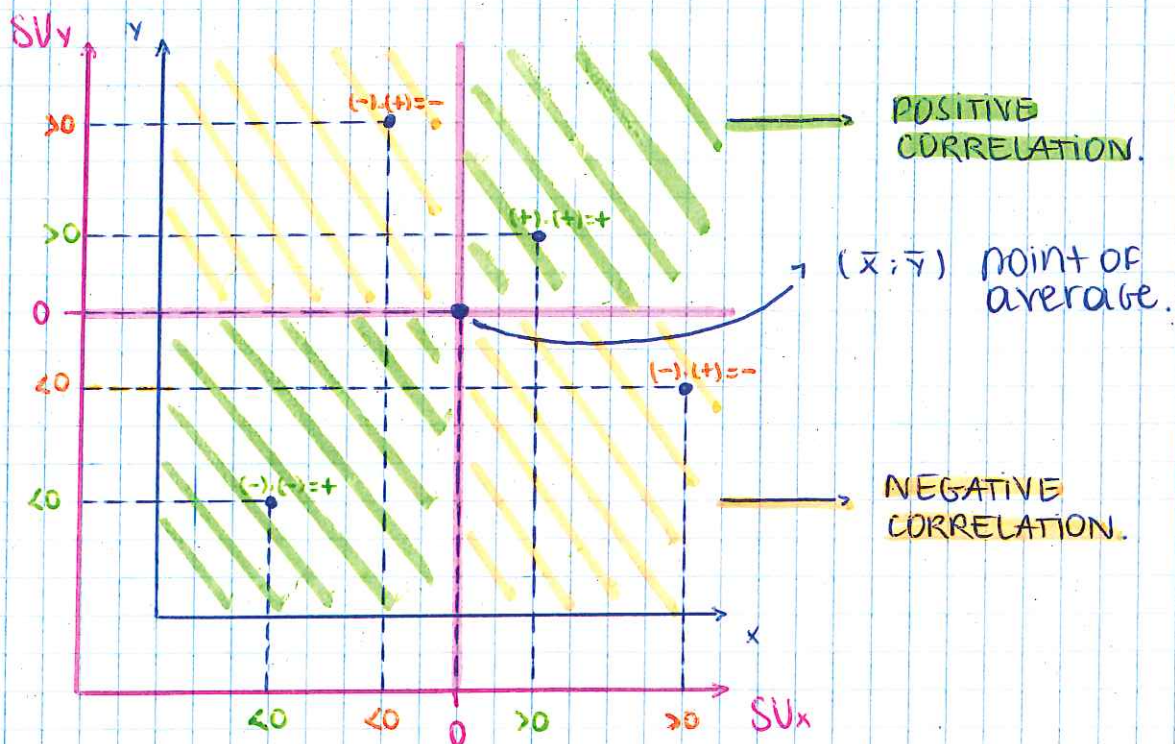 SUy
Y
(-).(+)=-
>0
POSITIVE
CORRELATION.
(+).(+)=+
>0
(x̄;ȳ) point of
average.
0
(-).(+)=-
<0
(-).(-)=+
<0
NEGATIVE
CORRELATION.
X
<0
<0
0
>0
>0
SUx